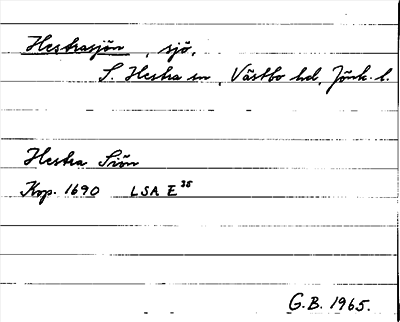 Hestrasjön, sjö,
S. Hestra sn, Västbo hd, Jönk. l.
Hestra Siön
Kop. 1690 LSA E 35
G.B. 1965.